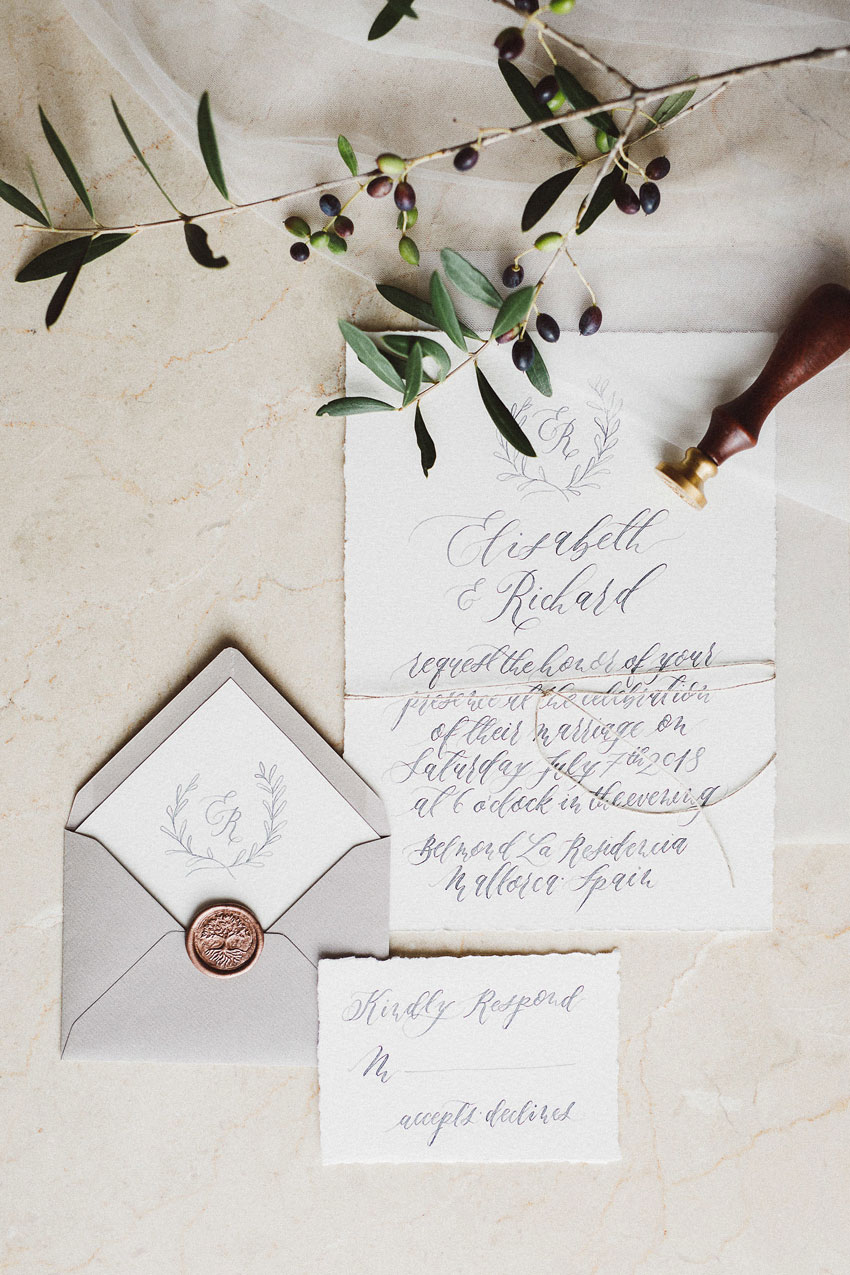 ER
Elisabeth
& Richard
request the honor of your
presence at the celibration
of their marriage on
Saturday July 7th 2018
at 6 o'clock in the evening
Belmond La Residencia
Mallorca · Spain
ER
Kindly Respond
M
accepts · declines